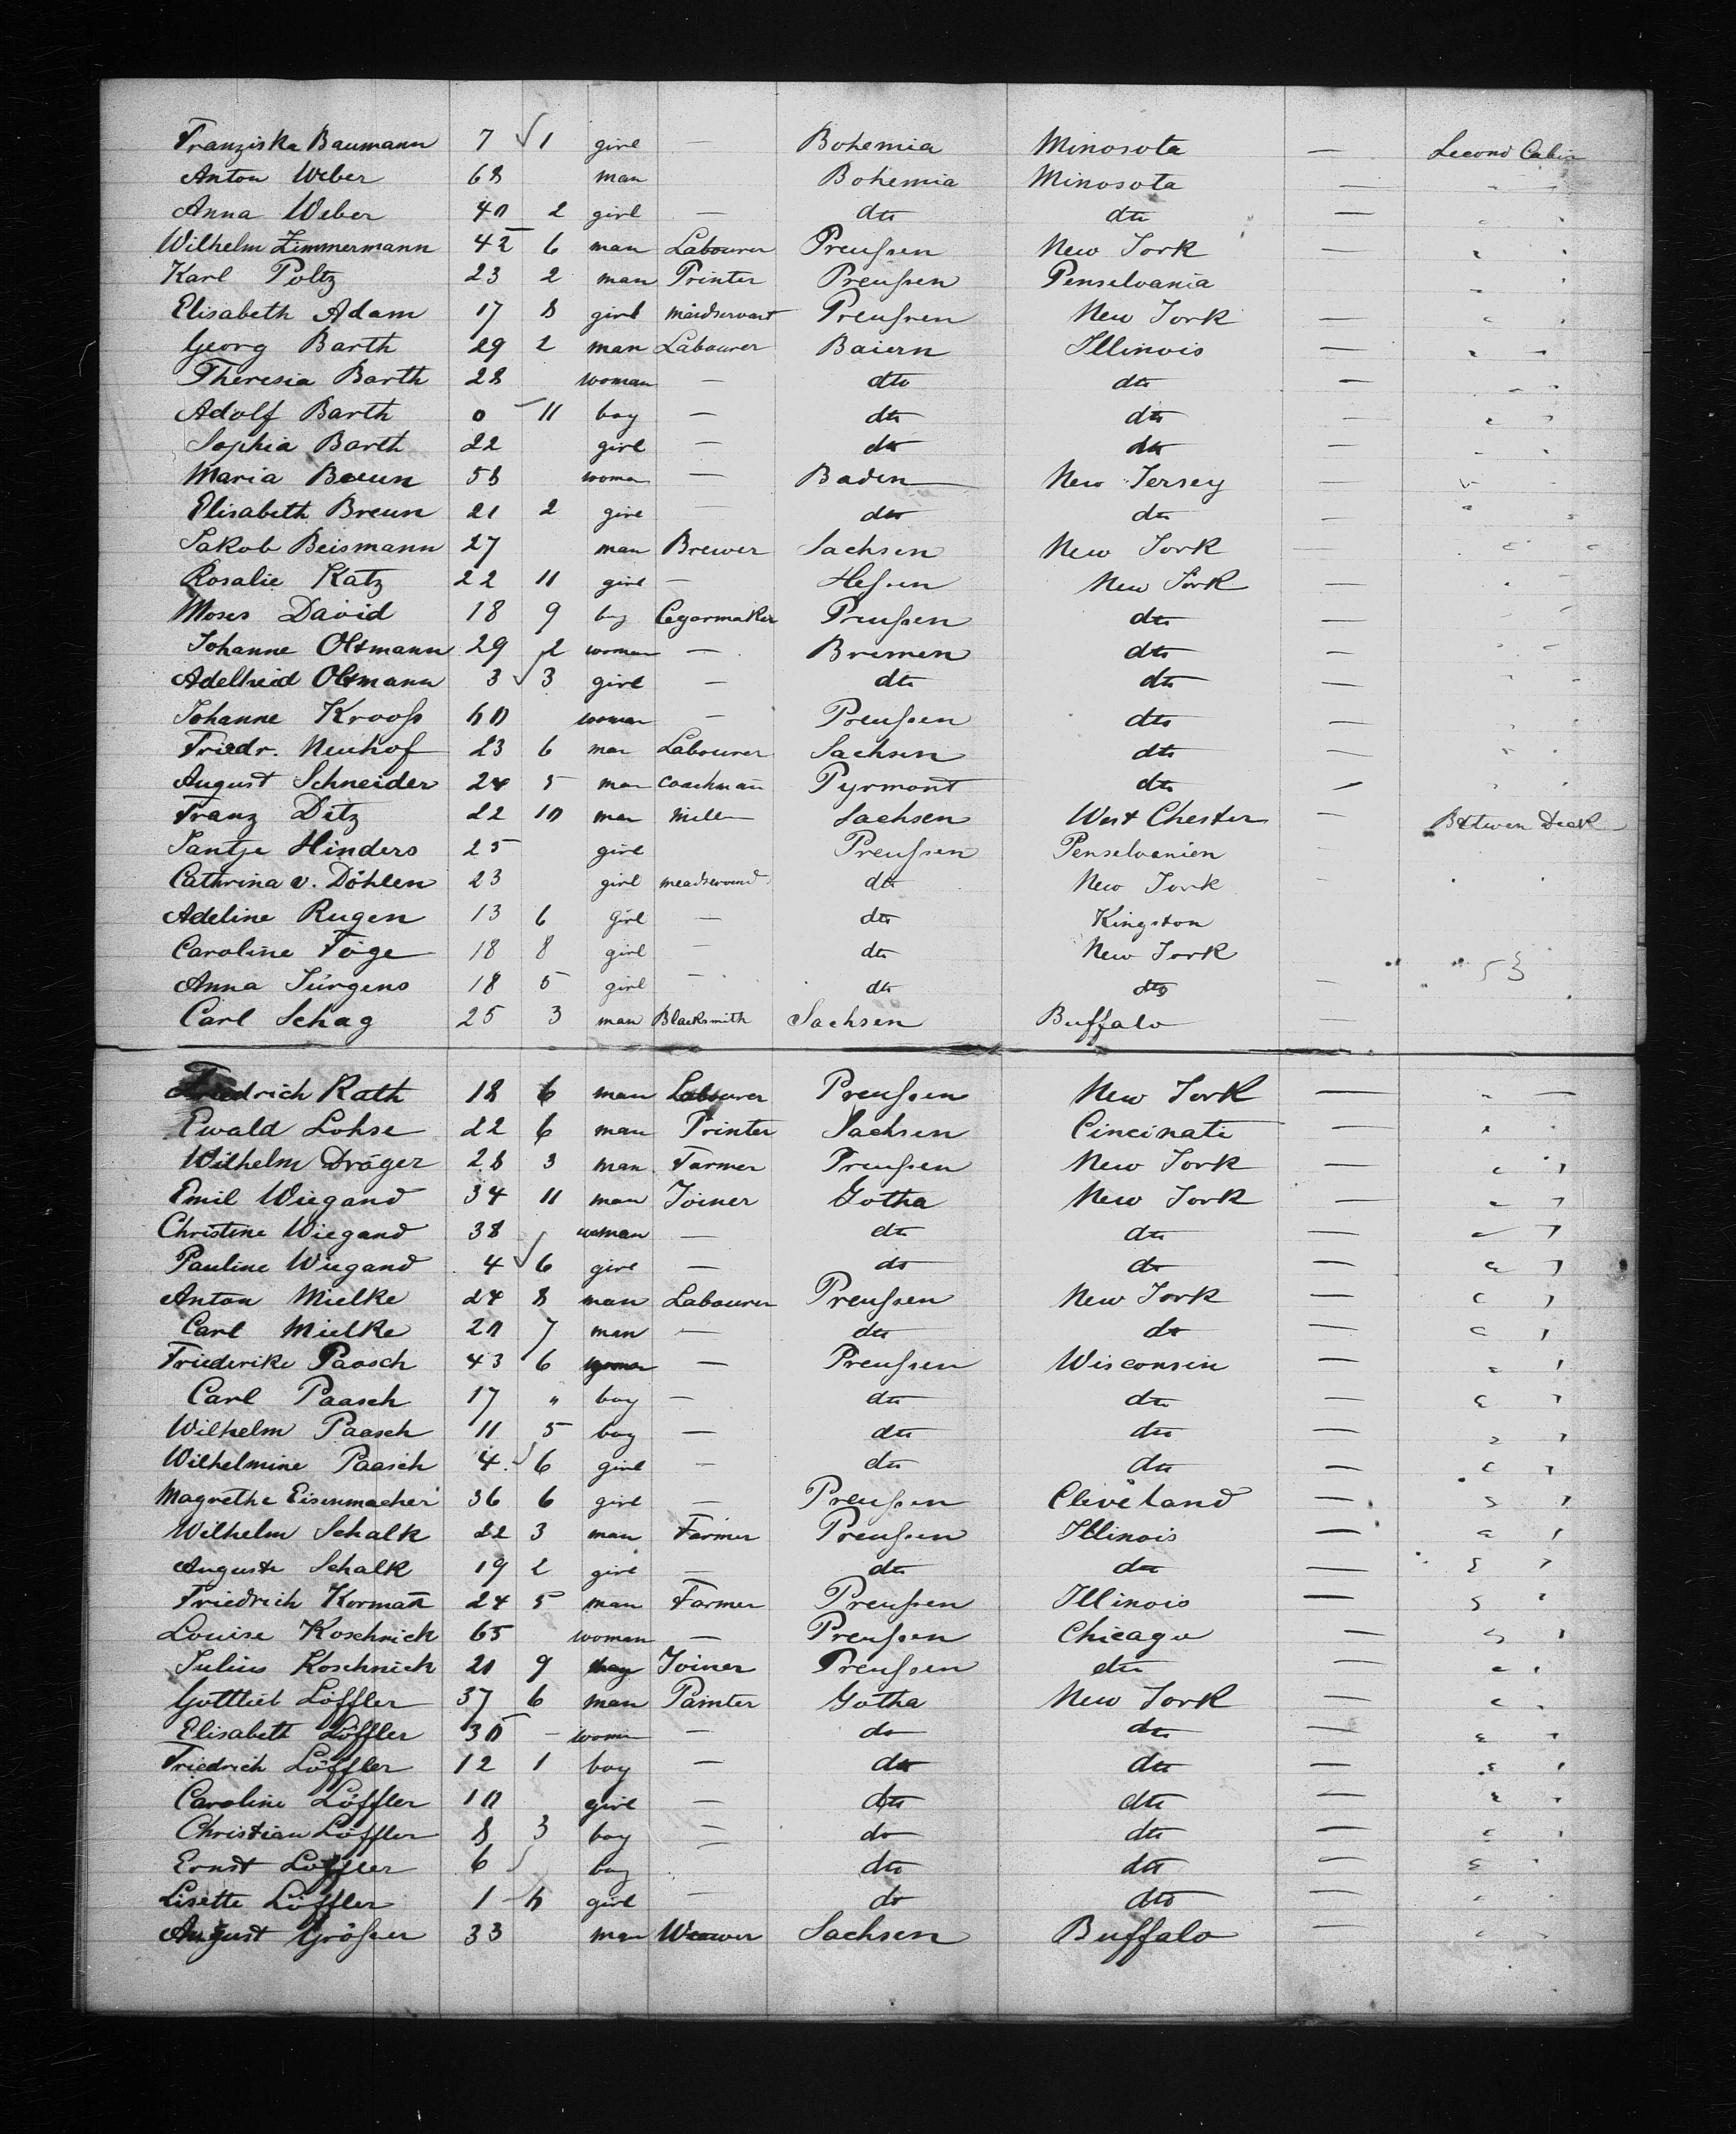 Franziska Baumann 7 1 girl — Bohemia Minosota — Second Cabin
Anton Weber 68 man Bohemia Minosota — " "
Anna Weber 40 2 girl — dto dto — " "
Wilhelm Zimmermann 42 6 man Labourer Preußen New York — " "
Karl Poltz 23 2 man Printer Preußen Penselvania " "
Elisabeth Adam 17 8 girl maidservant Preußen New York — " "
Georg Barth 29 2 man Labourer Baiern Illinois — " "
Theresia Barth 28 woman — dto dto — " "
Adolf Barth 0 11 boy — dto dto — " "
Sophia Barth 22 girl — dto dto — " "
Maria Breun 58 woman — Baden New Jersey — " "
Elisabeth Breun 21 2 girl — dto dto — " "
Jakob Beismann 27 man Brewer Sachsen New York — " "
Rosalie Katz 22 11 girl — Heßen New York — " "
Moses David 18 9 boy Cegarmaker Preußen dto — " "
Johanne Oltmann 29 2 woman — Bremen dto — " "
Adelheid Oltmann 3 3 girl — dto dto — " "
Johanne Krooß 60 woman — Preußen dto — " "
Friedr. Neuhof 23 6 man Labourer Sachsen dto — " "
August Schneider 24 5 man coachman Pyrmont dto — " "
Franz Ditz 22 10 man Miller Sachsen West Chester — Betwen Deck
Jantje Hinders 25 girl Preußen Penselvanien —
Cathrina v. Döhlen 23 girl dto New York —
Adeline Rugen 13 6 girl — dto Kingston
Caroline Föge 18 8 girl — dto New York
53
Anna Jürgens 18 5 girl — dto dto —
Carl Schag 25 3 man Blacksmith Sachsen Buffalo —
Friedrich Rath 18 6 man Labourer Preußen New York — " "
Ewald Lohse 22 6 man Printer Sachsen Cincinati — " "
Wilhelm Dräger 28 3 man Farmer Preußen New York — " "
Emil Wiegand 34 11 man Joiner Gotha New York — " "
Christine Wiegand 38 woman — dto dto — " "
Pauline Wiegand 4 6 girl — do do — " "
Anton Mielke 24 8 man Labourer Preußen New York — " "
Carl Mielke 20 7 man — dto do — " "
Friederike Paasch 43 6 woman — Preußen Wisconsin — " "
Carl Paasch 17 " boy — dto dto — " "
Wilhelm Paasch 11 5 boy — dto dto — " "
Wilhelmine Paasch 4 6 girl — dto dto — " "
Magrethe Eisenmacher 36 6 girl — Preußen Cliveland — " "
Wilhelm Schalk 22 3 man Farmer Preußen Illinois — " "
Auguste Schalk 19 2 girl — dto dto — " "
Friedrich Korman̄ 24 5 man Farmer Preußen Illinois — " "
Louise Koschnick 65 woman — Preußen Chicago — " "
Julius Koschnick 21 9 Joiner Preußen dto — " "
Gottlieb Löffler 37 6 man Painter Gotha New York — " "
Elisabeth Löffler 30 — woman — do dto — " "
Friedrich Löffler 12 1 boy — dto dto — " "
Caroline Löffler 10 girl — dto dto — " "
Christian Löffler 8 3 boy — do dto — " "
Ernst Löffler 6 boy dto dto — " "
Lisette Löffler 1 6 girl — do dto — " "
August Größer 33 man Weawer Sachsen Buffalo — " "